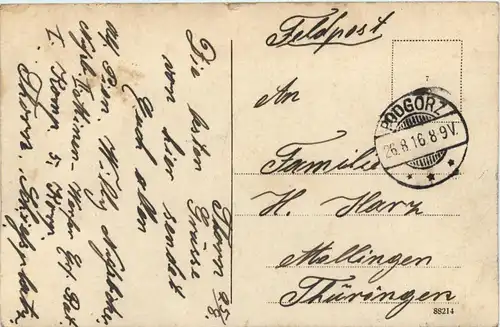 Feldpost
An
Familie
H. Harz
Mellingen
Thüringen
PODGORZ
26.8.16.8-9V.
88214
Thorn 25/8.
Die besten Grüsse
von hier sendet
Euch allen
Willy
I. Komp. 5. Korp.
Thorn. Schiessplatz